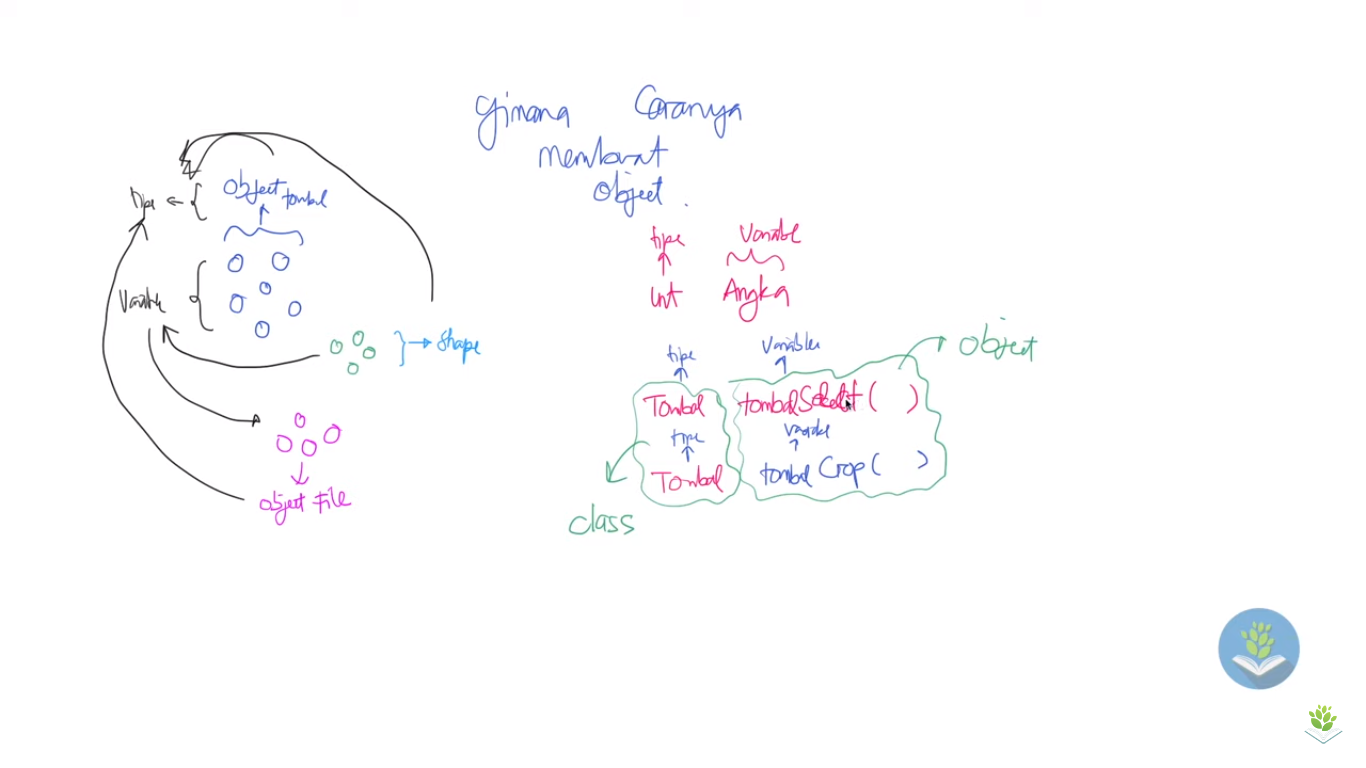 Gimana Caranya
membuat
object.
tipe
object tombol
Variable
shape
object File
tipe Variabel
Int Angka
tipe Variabel
object
Tombol tombolSelect( )
tipe Variabel
Tombol tombolCrop( )
class